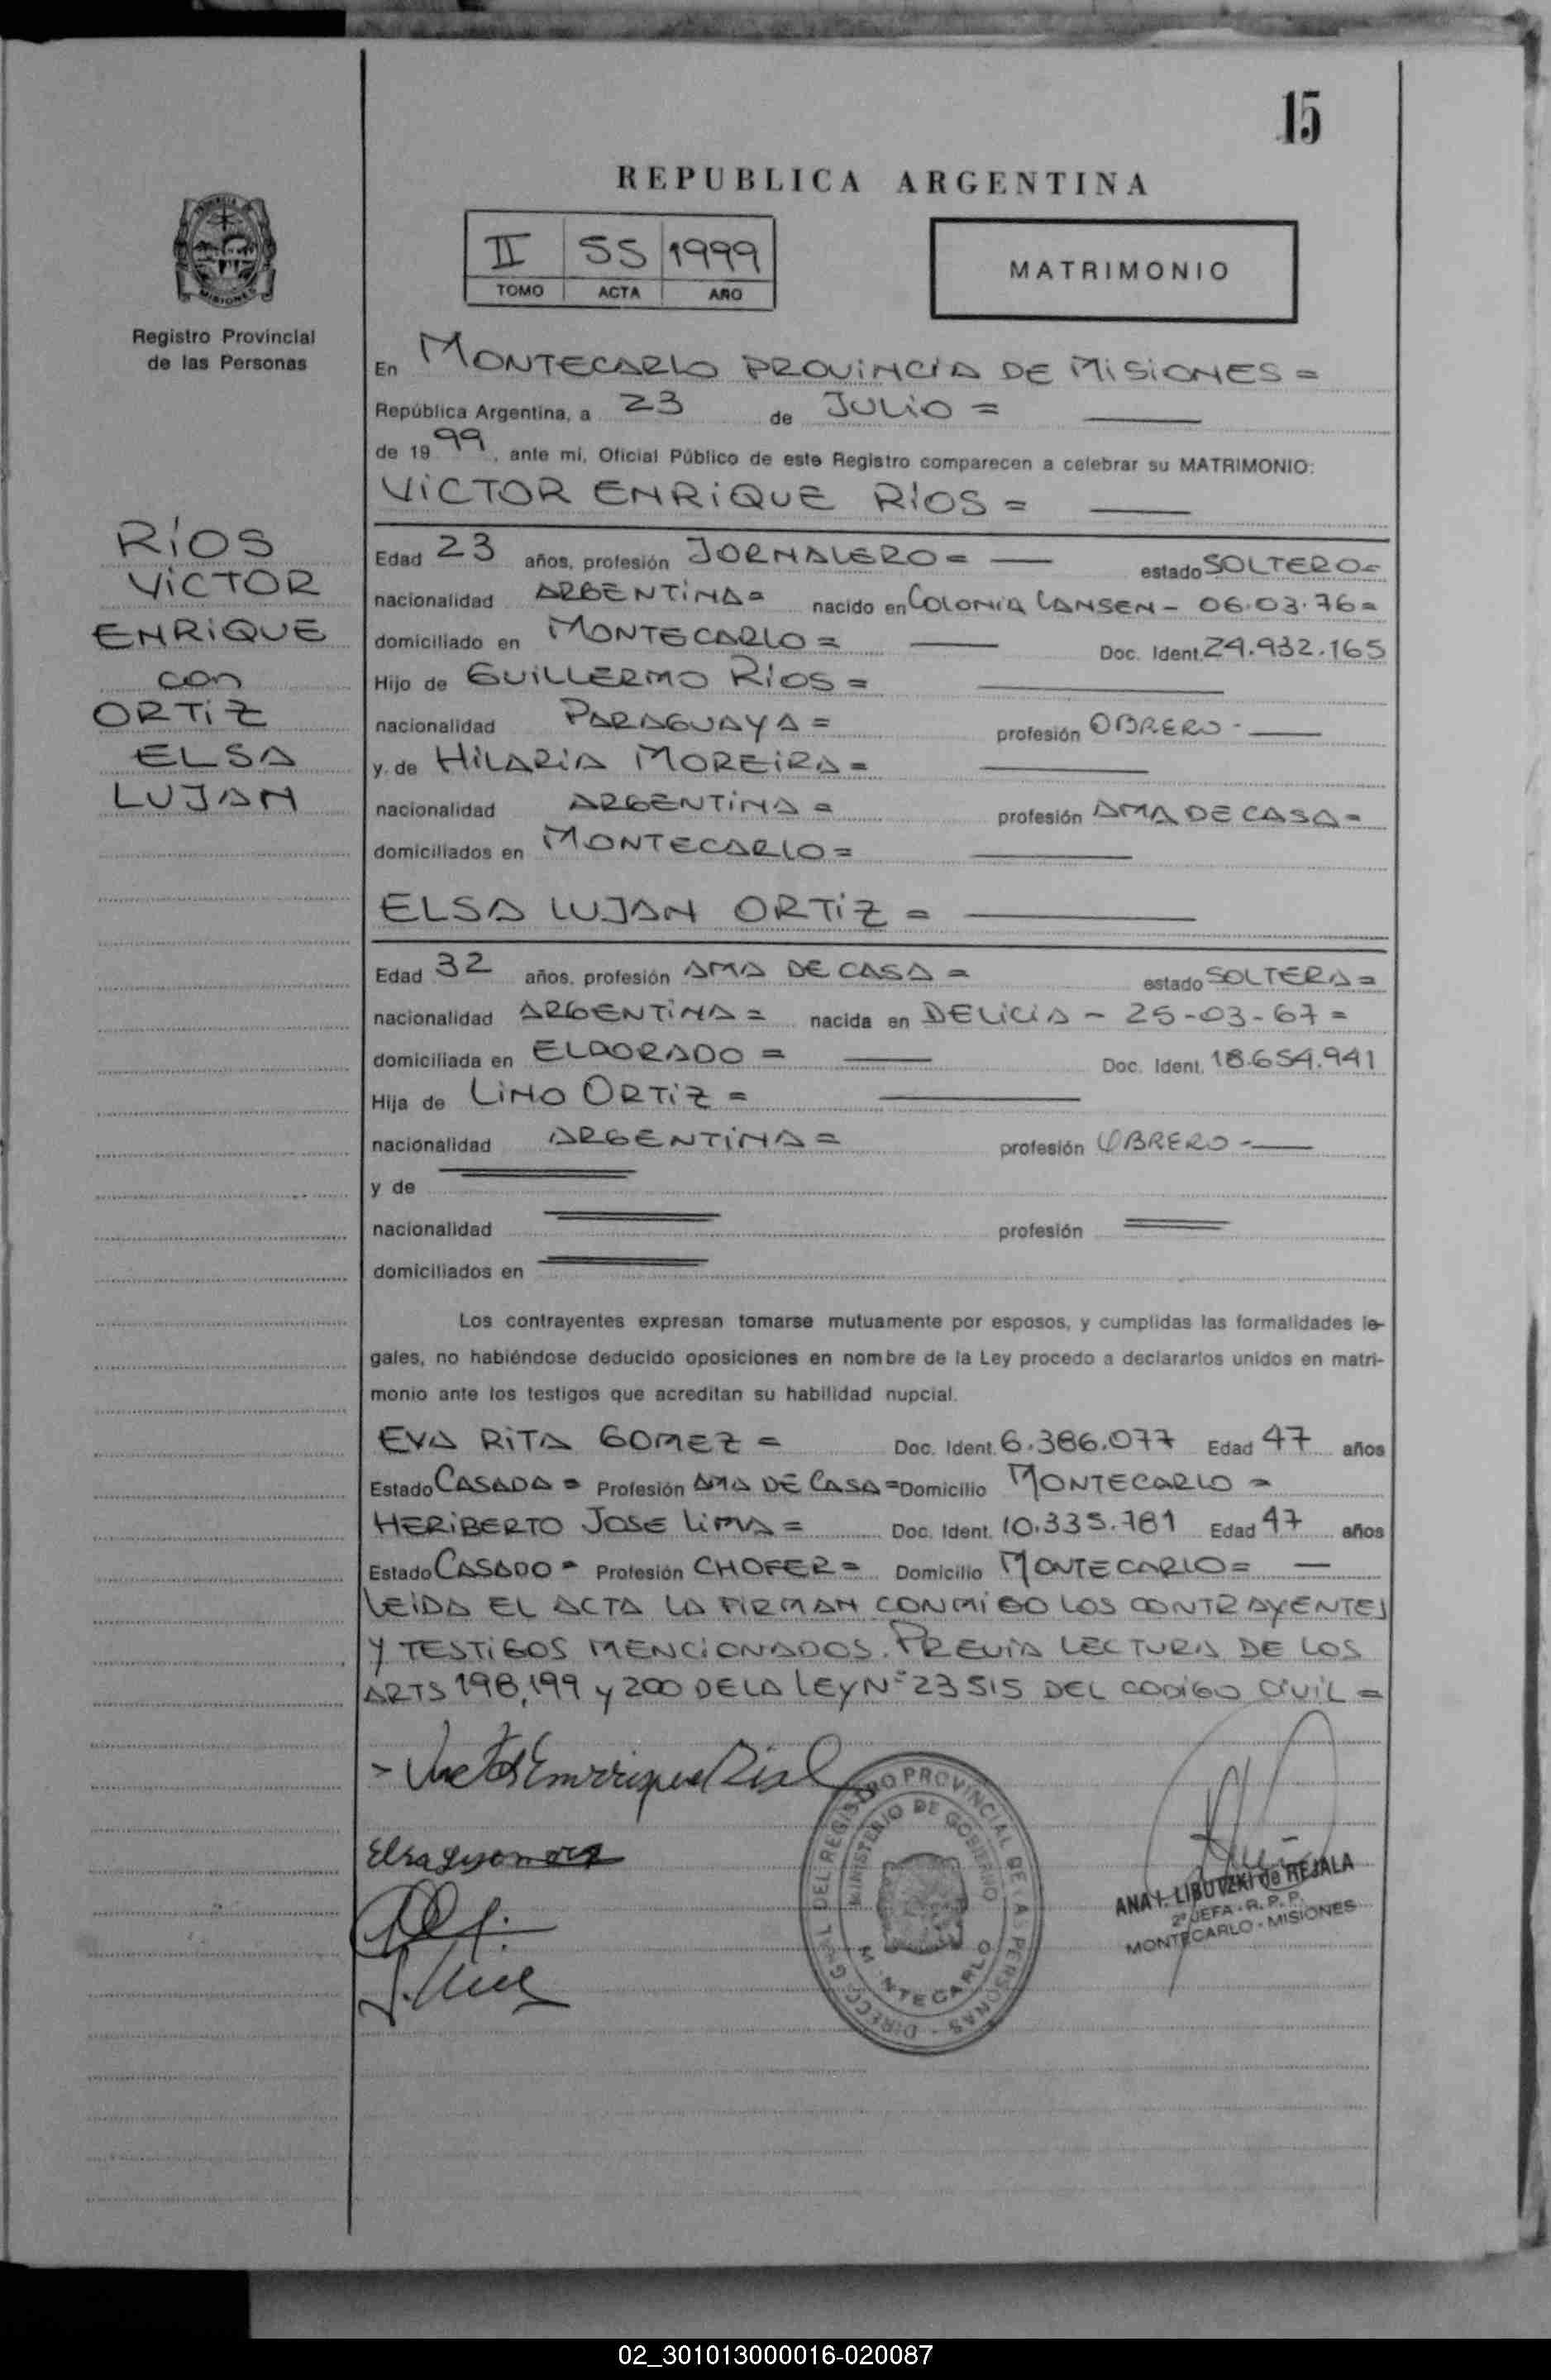 15
REPUBLICA ARGENTINA
II 55 1999
TOMO ACTA AÑO
MATRIMONIO
MISIONES
Registro Provincial
de las Personas
En MONTECARLO PROVINCIA DE MISIONES =
República Argentina, a 23 de JULIO =
de 19 99, ante mí, Oficial Público de este Registro comparecen a celebrar su MATRIMONIO:
VICTOR ENRIQUE RÍOS =
RÍOS
VICTOR
ENRIQUE
con
ORTIZ
ELSA
LUJAN
Edad 23 años, profesión JORNALERO = estado SOLTERO =
nacionalidad ARGENTINA = nacido en COLONIA LANSEN - 06.03.76 =
domiciliado en MONTECARLO = Doc. Ident. 24.932.165
Hijo de GUILLERMO RÍOS =
nacionalidad PARAGUAYA = profesión OBRERO -
y de HILARIA MOREIRA =
nacionalidad ARGENTINA = profesión AMA DE CASA =
domiciliados en MONTECARLO =
ELSA LUJAN ORTIZ =
Edad 32 años, profesión AMA DE CASA = estado SOLTERA =
nacionalidad ARGENTINA = nacida en DELICIA - 25-03-67 =
domiciliada en ELDORADO = Doc. Ident. 18.654.941
Hija de LINO ORTIZ =
nacionalidad ARGENTINA = profesión OBRERO -
y de
nacionalidad profesión
domiciliados en
Los contrayentes expresan tomarse mutuamente por esposos, y cumplidas las formalidades le-
gales, no habiéndose deducido oposiciones en nombre de la Ley procedo a declararlos unidos en matri-
monio ante los testigos que acreditan su habilidad nupcial.
EVA RITA GOMEZ = Doc. Ident. 6.386.077 Edad 47 años
Estado CASADA = Profesión AMA DE CASA = Domicilio MONTECARLO =
HERIBERTO JOSE LIMA = Doc. Ident. 10.335.781 Edad 47 años
Estado CASADO = Profesión CHOFER = Domicilio MONTECARLO =
LEIDA EL ACTA LA FIRMAN CONMIGO LOS CONTRAYENTES
Y TESTIGOS MENCIONADOS. PREVIA LECTURA DE LOS
ARTS 198, 199 y 200 DE LA LEY Nº 23515 DEL CODIGO CIVIL =
DIRECC. GRAL. DEL REGISTRO PROVINCIAL DE LAS PERSONAS
MINISTERIO DE GOBIERNO
MONTECARLO
ANA I. LIBUTZKI de REJALA
2ª JEFA - R. P. P.
MONTECARLO - MISIONES
02_301013000016-020087